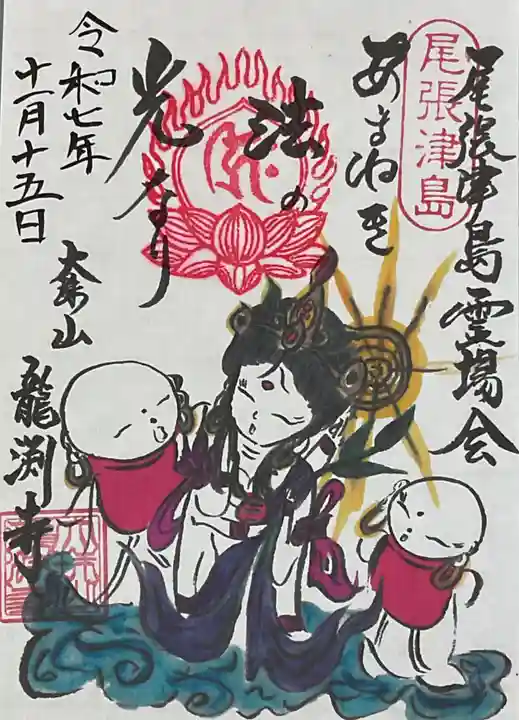 尾張津島霊場会
尾張津島
あまねき
法の
光なり
令和七年
十一月十五日
龍渕寺